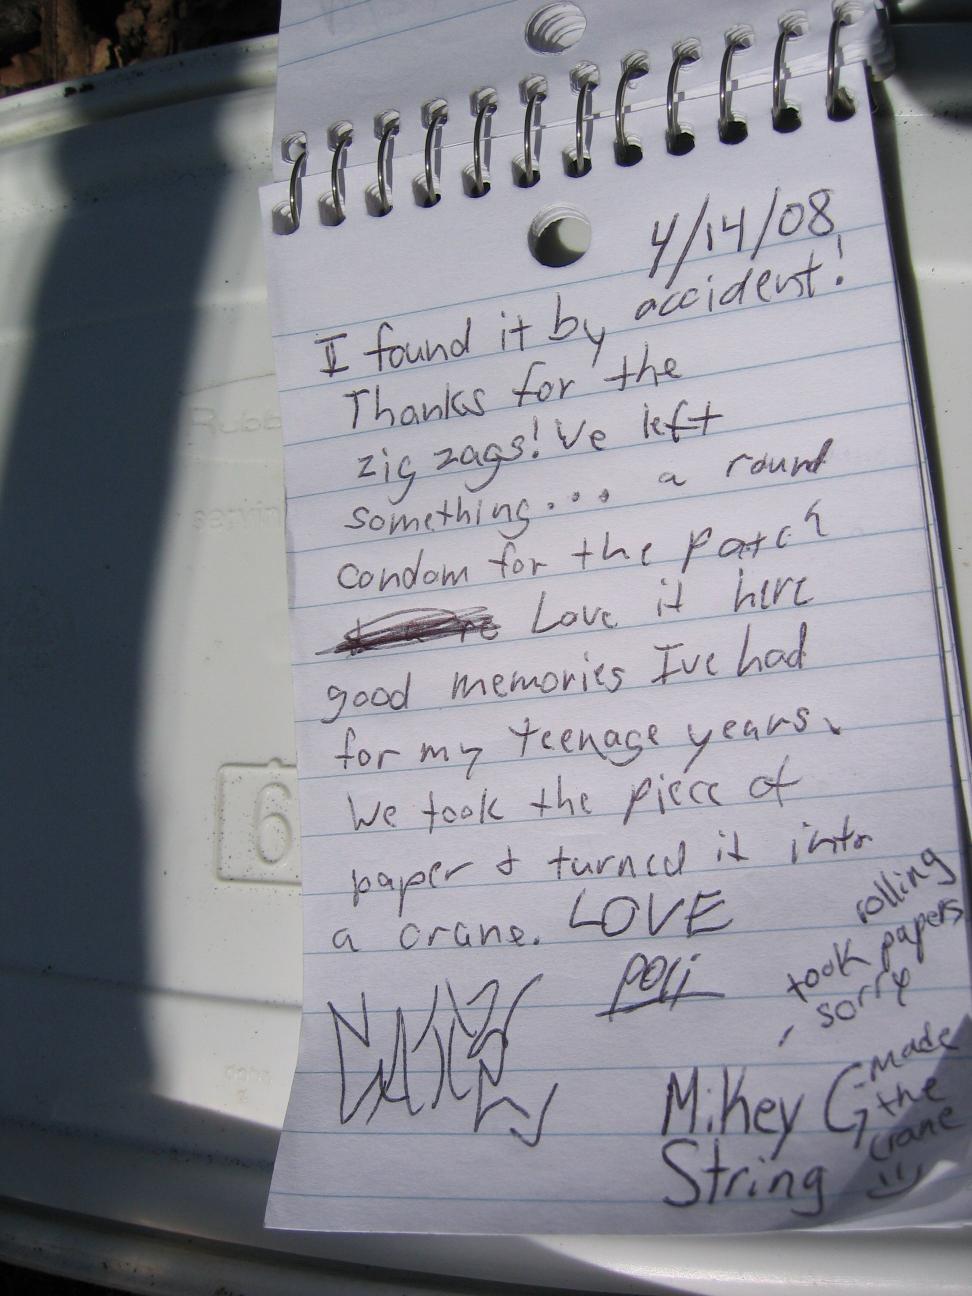 4/14/08
I found it by accident!
Thanks for the
zig zags! I've left
something... a round
condom for the patch
Love it here
good memories Ive had
for my teenage years.
We took the piece of
paper & turned it into
a crane. LOVE
poli
rolling
took papers
sorry
Mikey G
String
-made
the
crane
Rubb
servin
6